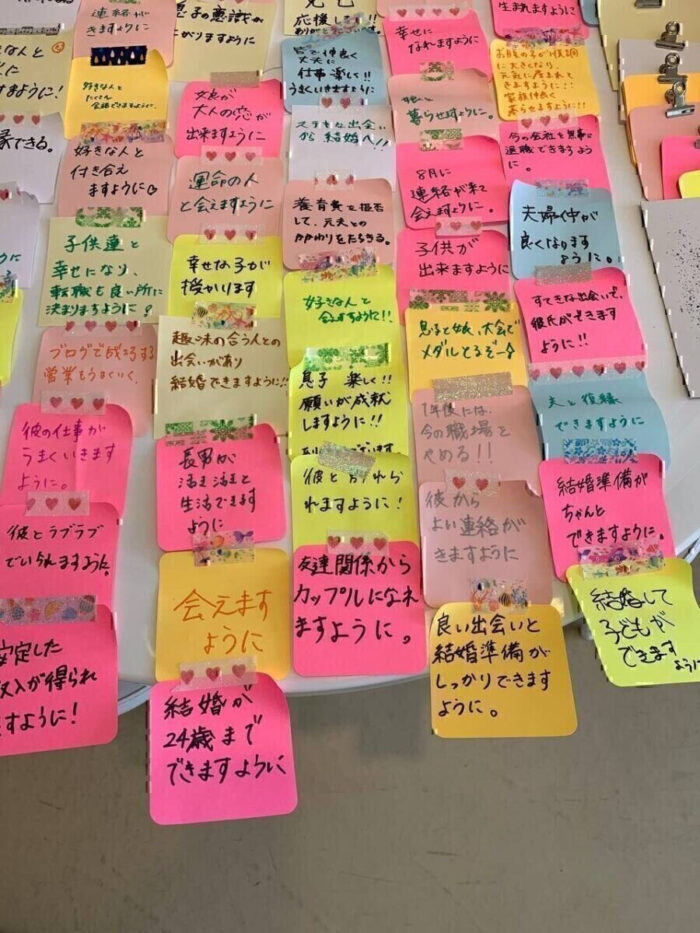 連絡が
きますように
応援します!!
ありがとうございます
生まれますように
好きな人と
ますように!
好きな人と
たくさん
会話できますように。
娘が
大人の恋が
出来ますように
皆で仲良く
丈夫に
仕事楽しく!!
うまくいきますように
幸せに
なれますように
お腹の子が順調
に大きくなり、
元気に産まれて
きますように!!
家族仲良く
暮らせますように!!!
できる。
好きな人と
付き合え
ますように
運命の人
と会えますように
ステキな出会い
から 結婚へ!!
娘と
暮らせますように。
今の会社を無事に
退職できますよう
に。
子供達と
幸せになり、
転職も良い所に
決まりますように!
幸せな子が
授かります
養育費を拒否
して、元夫との
かかわりをたちきる。
8月に
連絡が来て
会えますように。
夫婦仲が
良くなります
ように。
ブログで成功する
営業もうまくいく。
趣味の合う人との
出会いがあり
結婚できますように!!
好きな人と
会えますように!!
子供が
出来ますように
すてきな出会いで、
彼氏ができます
ように!!
彼の仕事が
うまくいきます
ように。
長男が
活き活きと
生活できます
ように
息子 楽しく!!
願いが成就
しますように!!
息子と娘、大会で
メダルとるぞー
夫と復縁
できますように
彼とラブラブ
でいられますように。
会えます
ように
彼と
れますように!
1年後には、
今の職場を
やめる!!
結婚準備が
ちゃんと
できますように。
安定した
収入が得られ
ますように!
結婚が
24歳まで
できますように
友達関係から
カップルになれ
ますように。
彼から
よい連絡が
きますように
良い出会いと
結婚準備が
しっかりできます
ように。
結婚して
子どもが
できます
ように